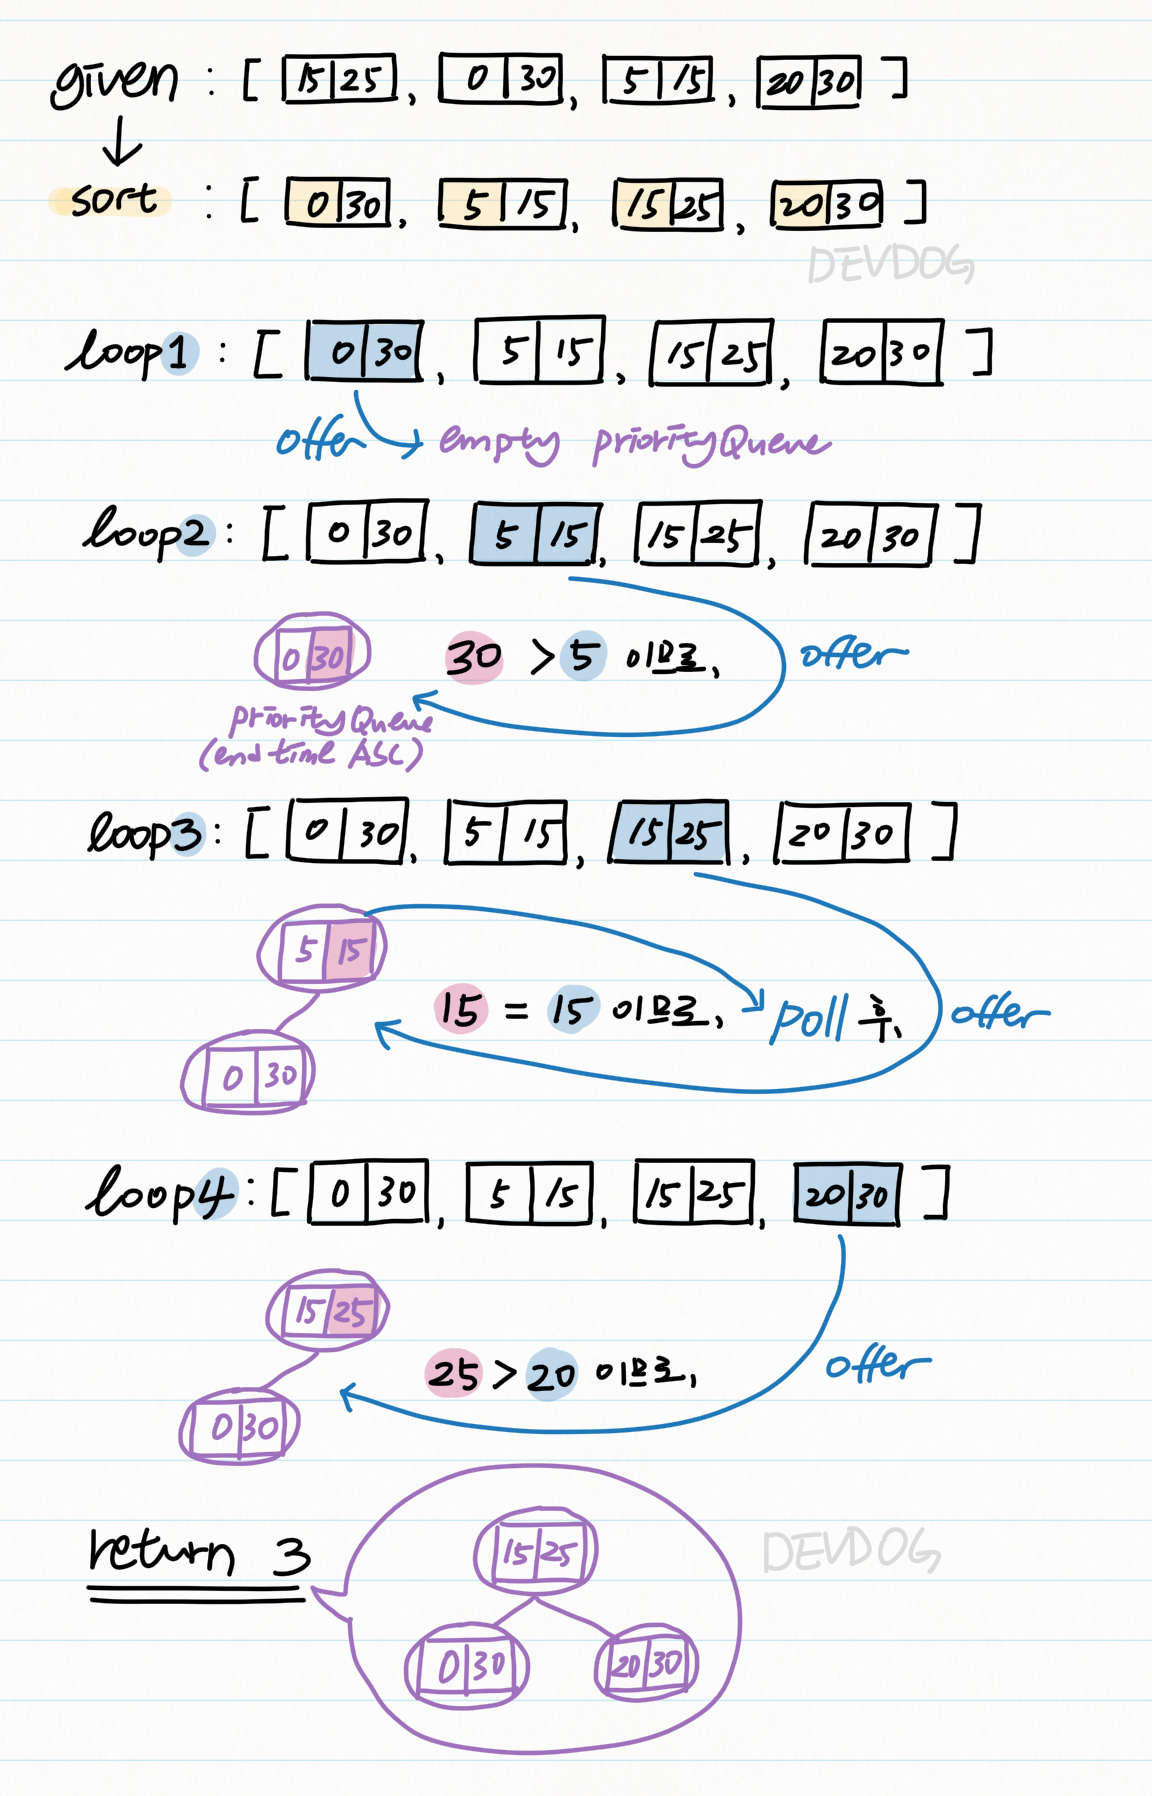 given : [ 15 25 , 0 30 , 5 15 , 20 30 ]
sort : [ 0 30 , 5 15 , 15 25 , 20 30 ]
DEVDOG
loop1 : [ 0 30 , 5 15 , 15 25 , 20 30 ]
offer empty priorityQueue
loop2 : [ 0 30 , 5 15 , 15 25 , 20 30 ]
0 30 30 > 5 이므로, offer
priorityQueue
(end time ASC)
loop3 : [ 0 30 , 5 15 , 15 25 , 20 30 ]
5 15
15 = 15 이므로, poll 후, offer
0 30
loop4 : [ 0 30 , 5 15 , 15 25 , 20 30 ]
15 25
25 > 20 이므로, offer
0 30
return 3
15 25
DEVDOG
0 30 20 30